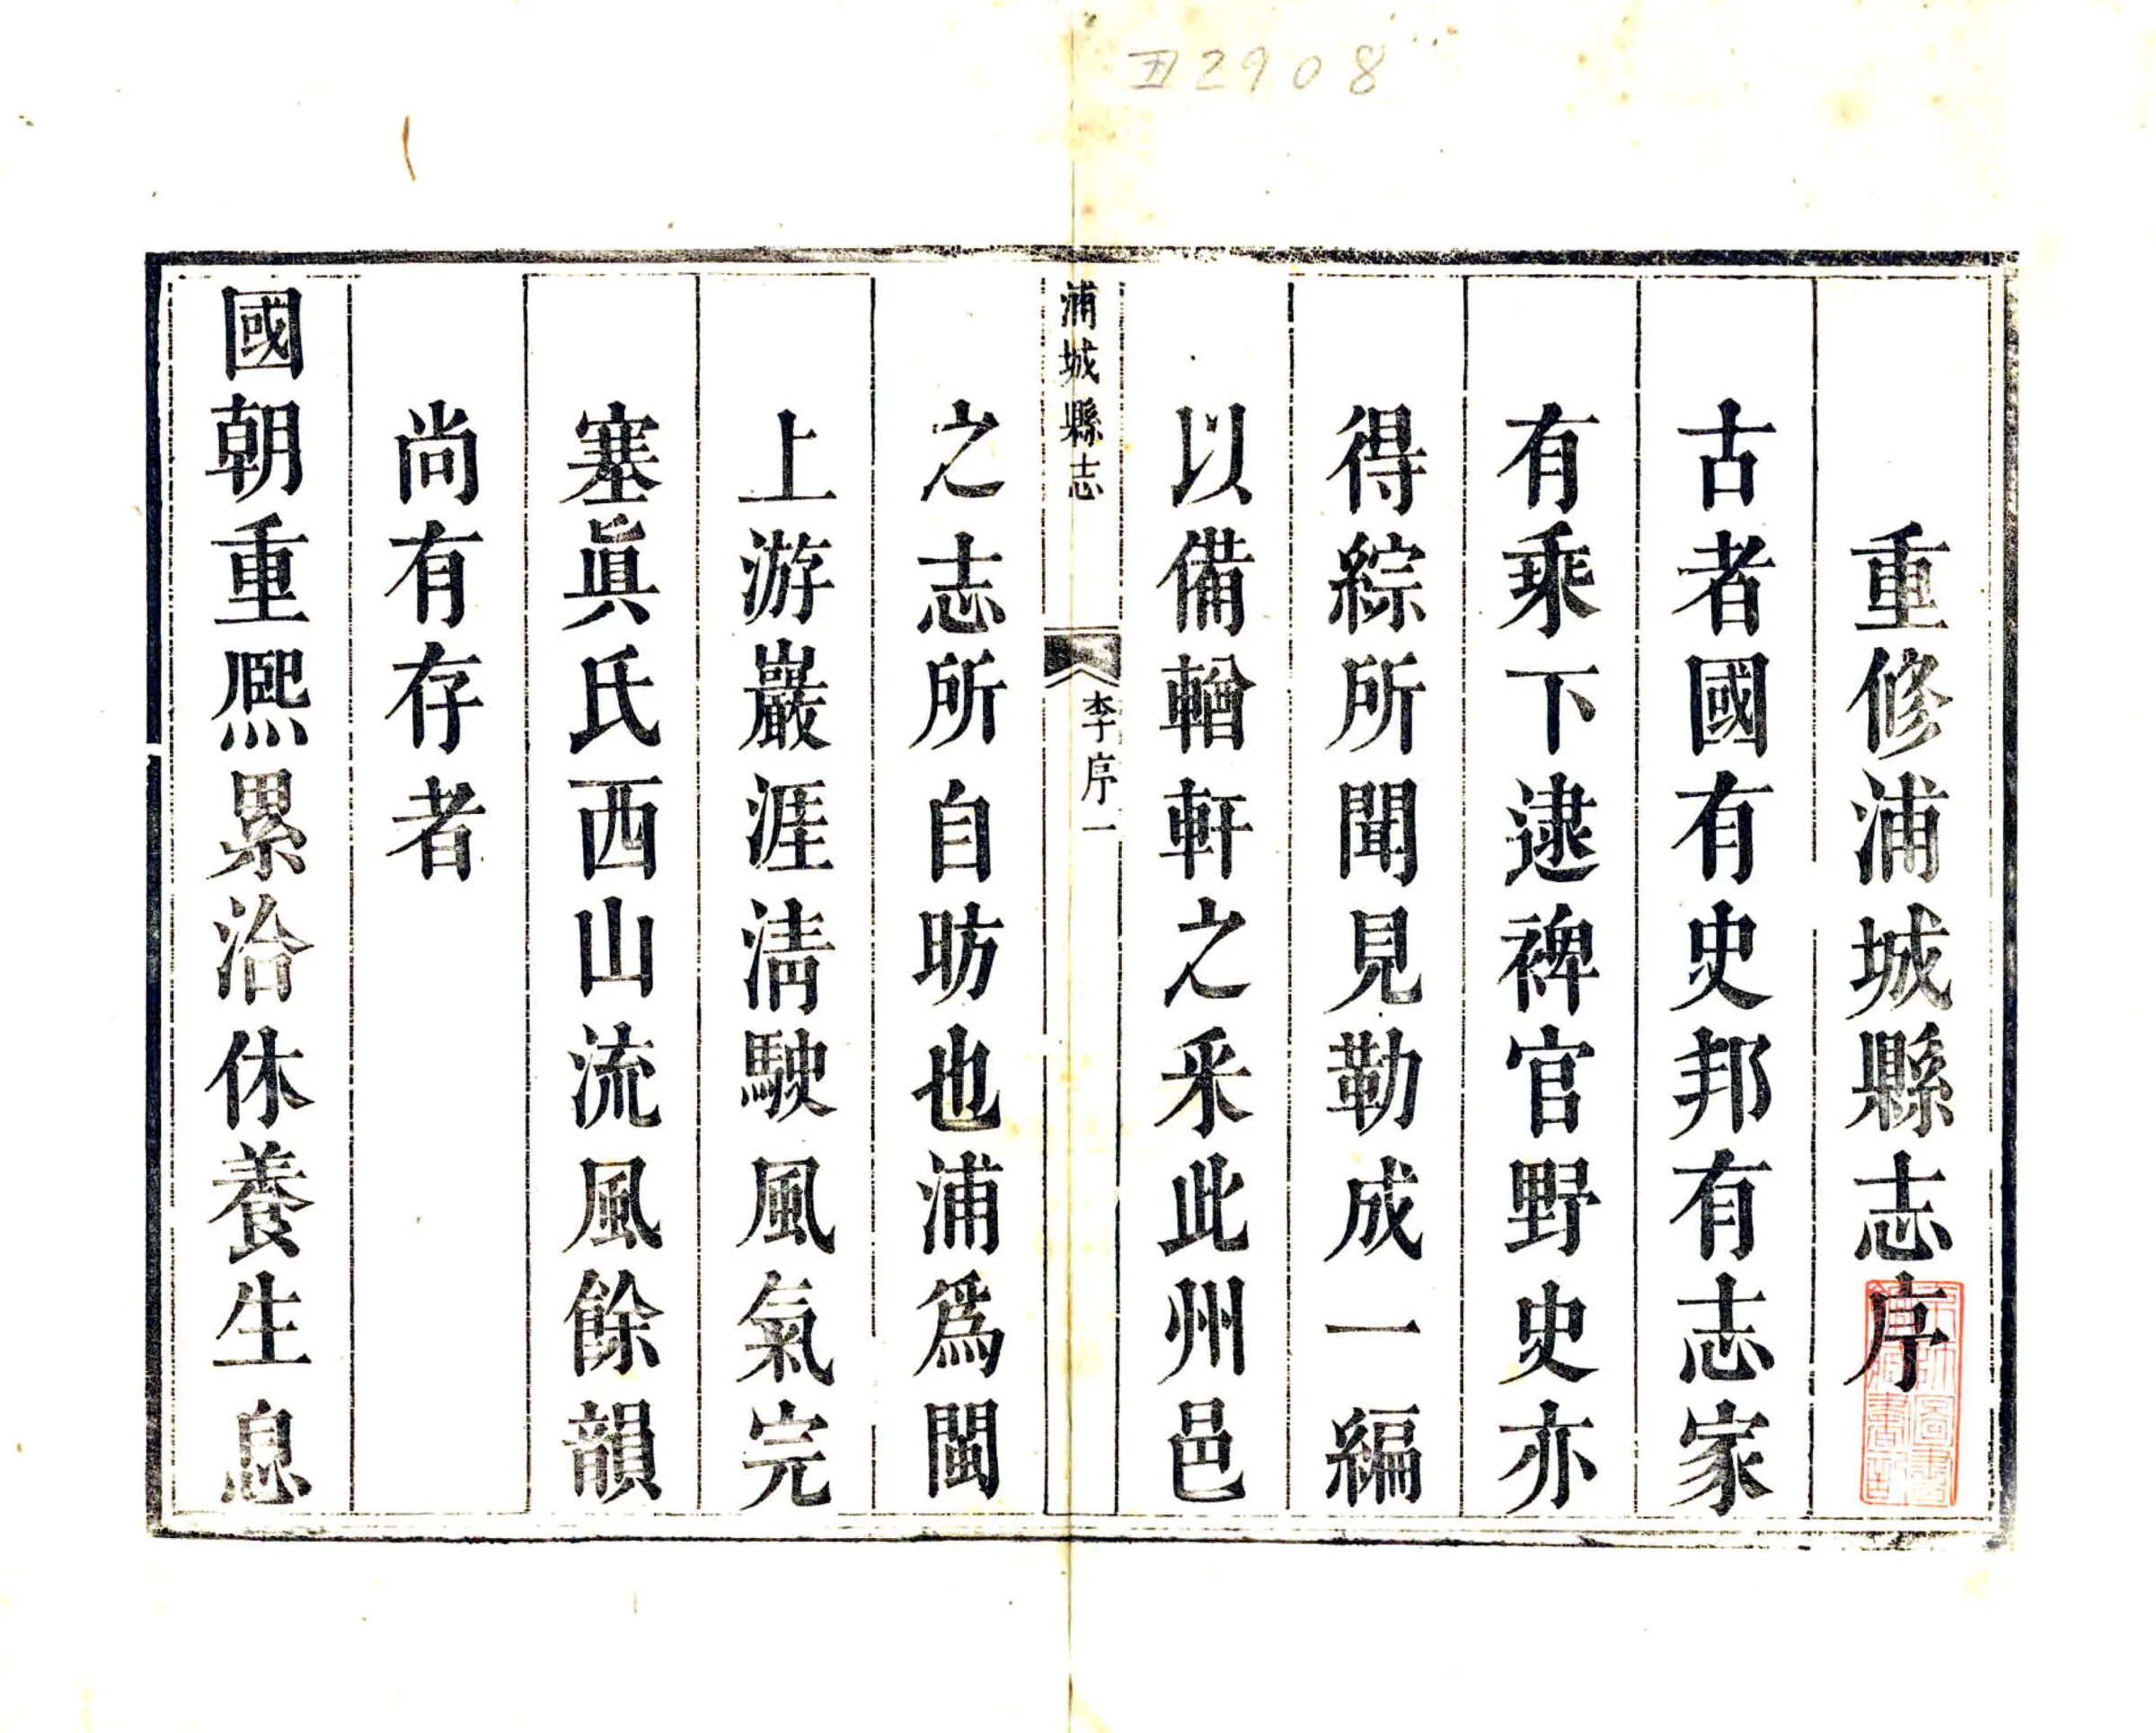 丑2908
重修浦城縣志序
古者國有史邦有志家
有乘下逮稗官野史亦
得綜所聞見勒成一編
以備輶軒之采此州邑
浦城縣志
李序一
之志所自昉也浦爲閩
上游巖涯淸駛風氣完
塞眞氏西山流風餘韻
尚有存者
國朝重熙累洽休養生息